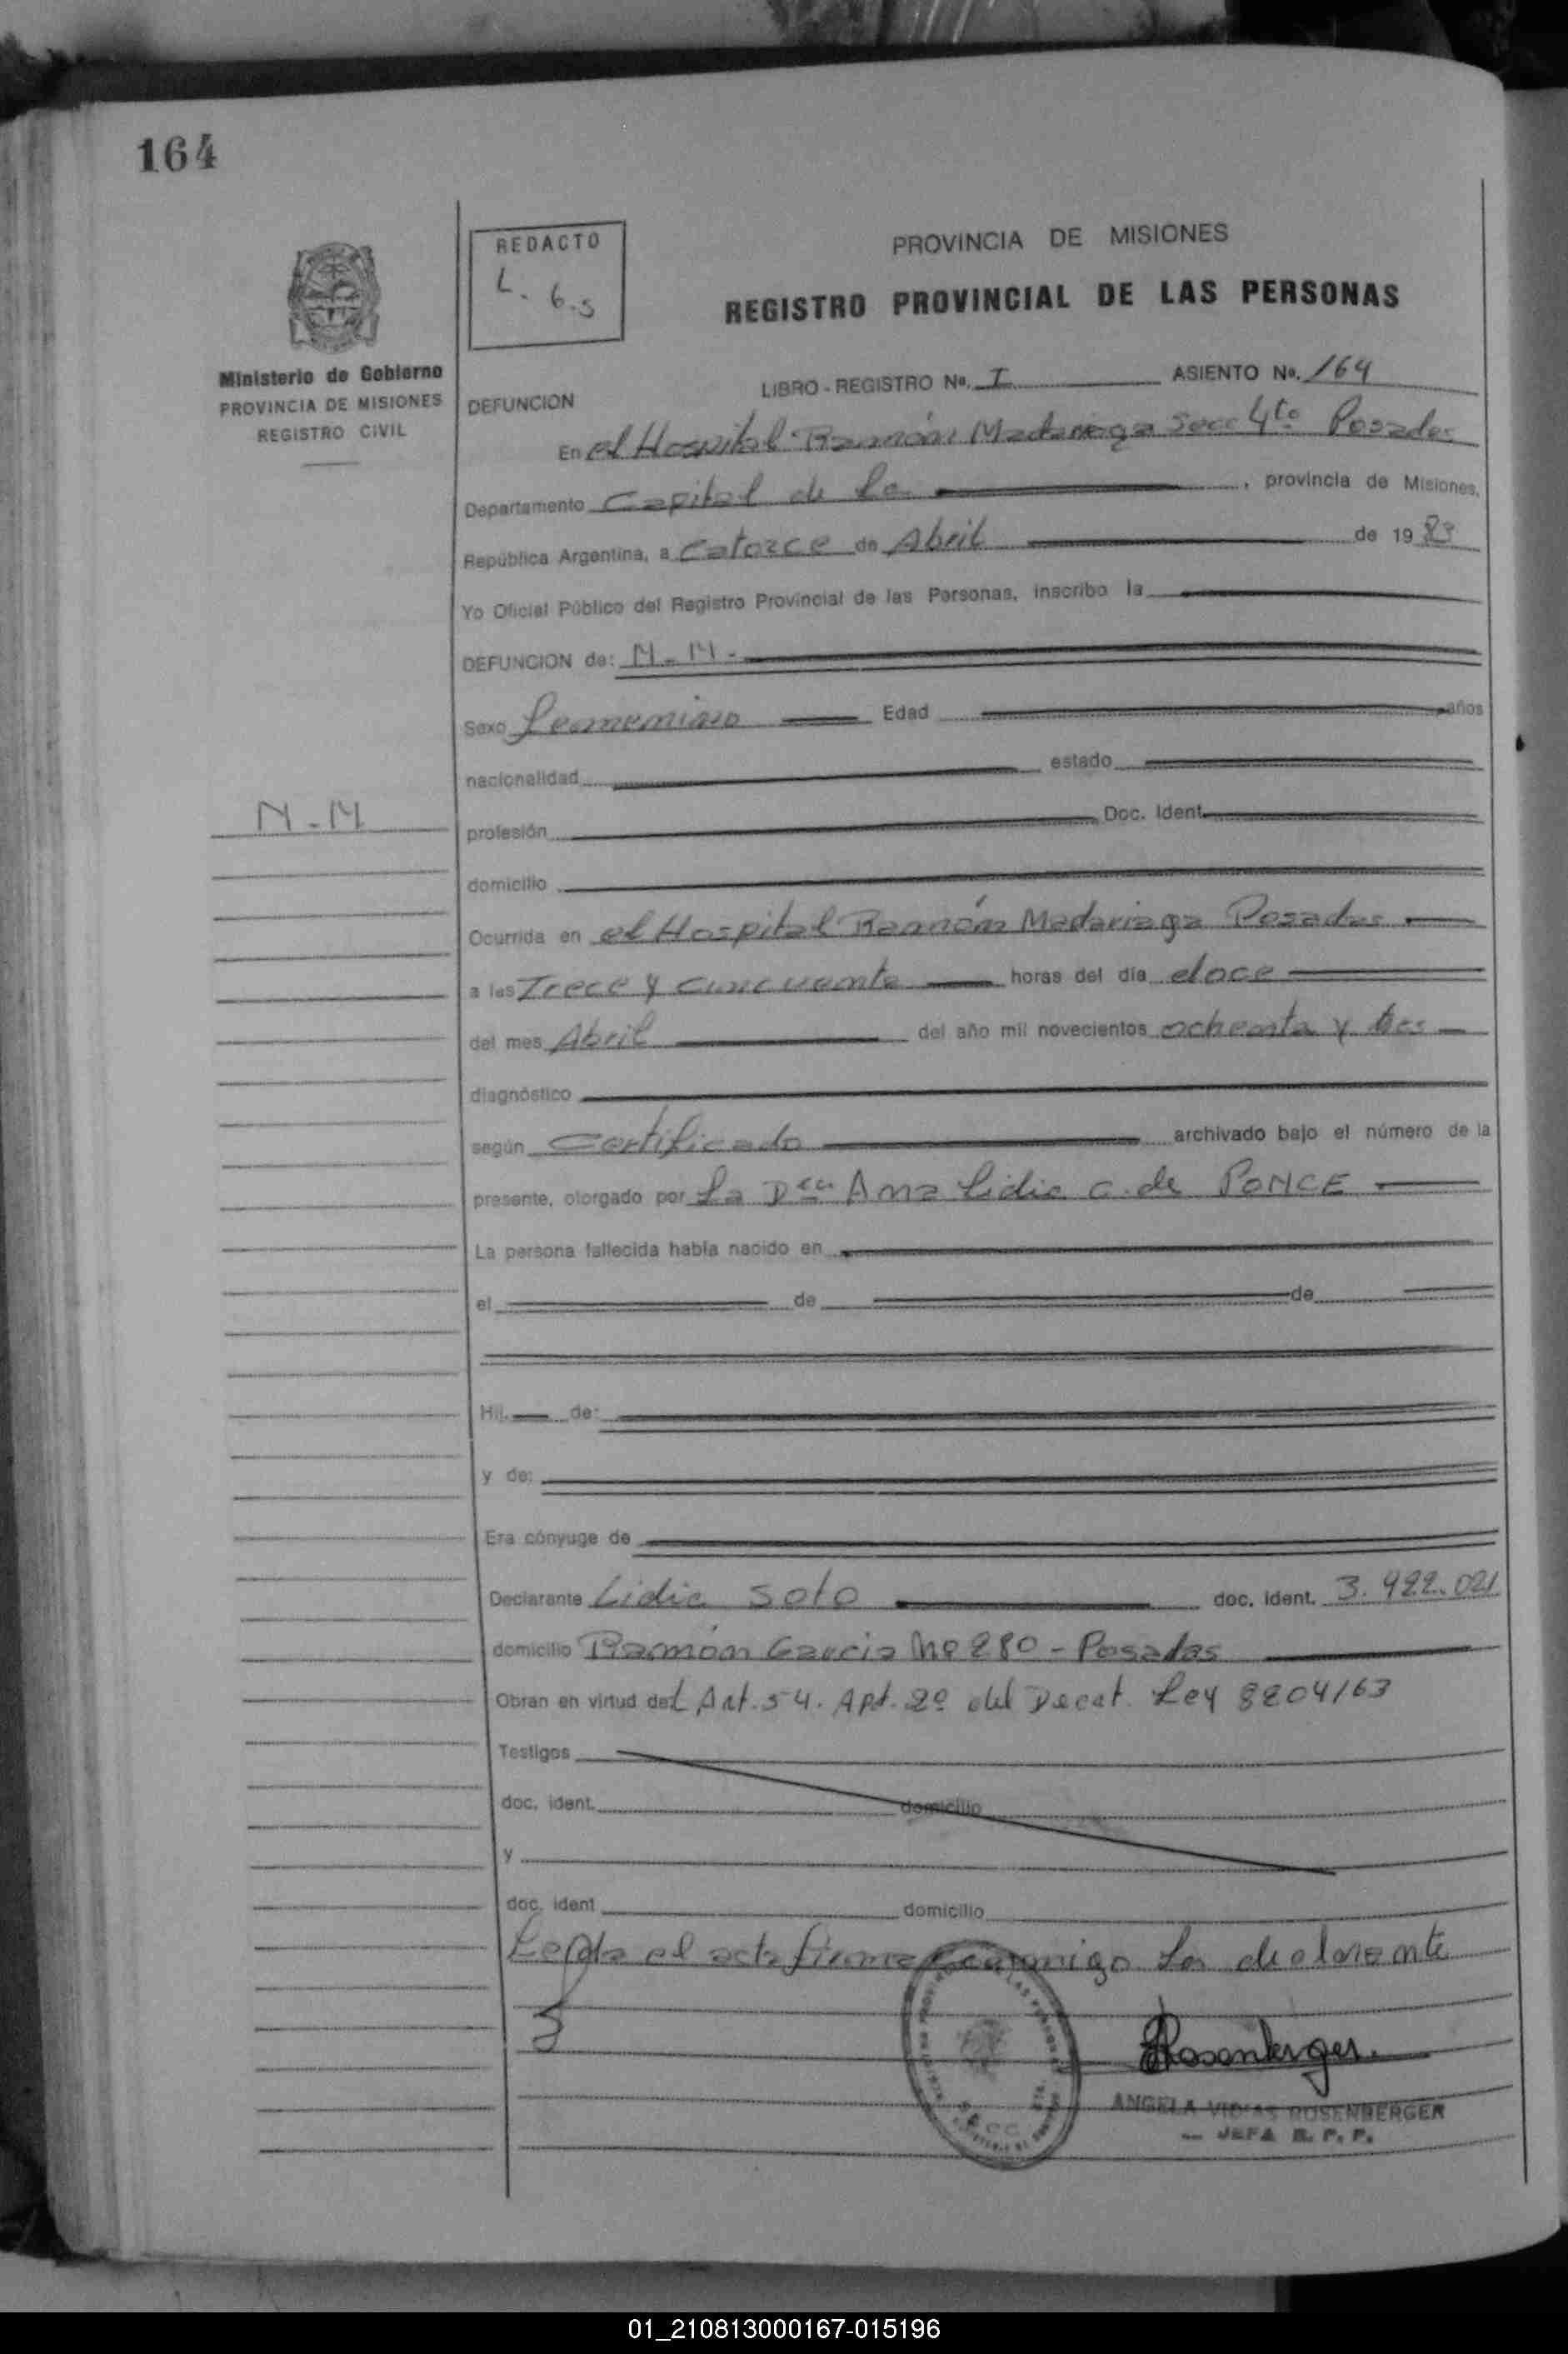 164
REDACTO
L. 6.5
PROVINCIA DE MISIONES
REGISTRO PROVINCIAL DE LAS PERSONAS
Ministerio de Gobierno
PROVINCIA DE MISIONES
REGISTRO CIVIL
LIBRO - REGISTRO No. I ASIENTO No. 164
DEFUNCION
En el Hospital Ramón Madariaga Secc 4ta Posadas
Departamento Capital de la , provincia de Misiones,
República Argentina, a Catorce de Abril de 1983
Yo Oficial Público del Registro Provincial de las Personas, inscribo la
DEFUNCION de: N.N.
Sexo Femenino Edad años
nacionalidad estado
N.N
profesión Doc. Ident.
domicilio
Ocurrida en el Hospital Ramón Madariaga Posadas
a las Trece y cincuenta horas del día doce
del mes Abril del año mil novecientos ochenta y tres
diagnóstico
según Certificado archivado bajo el número de la
presente, otorgado por La Dra Ana Lidia C. de PONCE
La persona fallecida había nacido en
el de de
Hij. de:
y de:
Era cónyuge de
Declarante Lidia Soto doc. ident. 3.922.021
domicilio Ramón Garcia No 280 - Posadas
Obran en virtud del Art. 54. Apt. 2º del Decat. Ley 8204/63
Testigos
doc. ident. domicilio
y
doc. ident domicilio
Leida el acta firma conmigo la declarante
Rosenberger.
ANGELA ROSENBERGER
JEFA R. P. P.
01_210813000167-015196